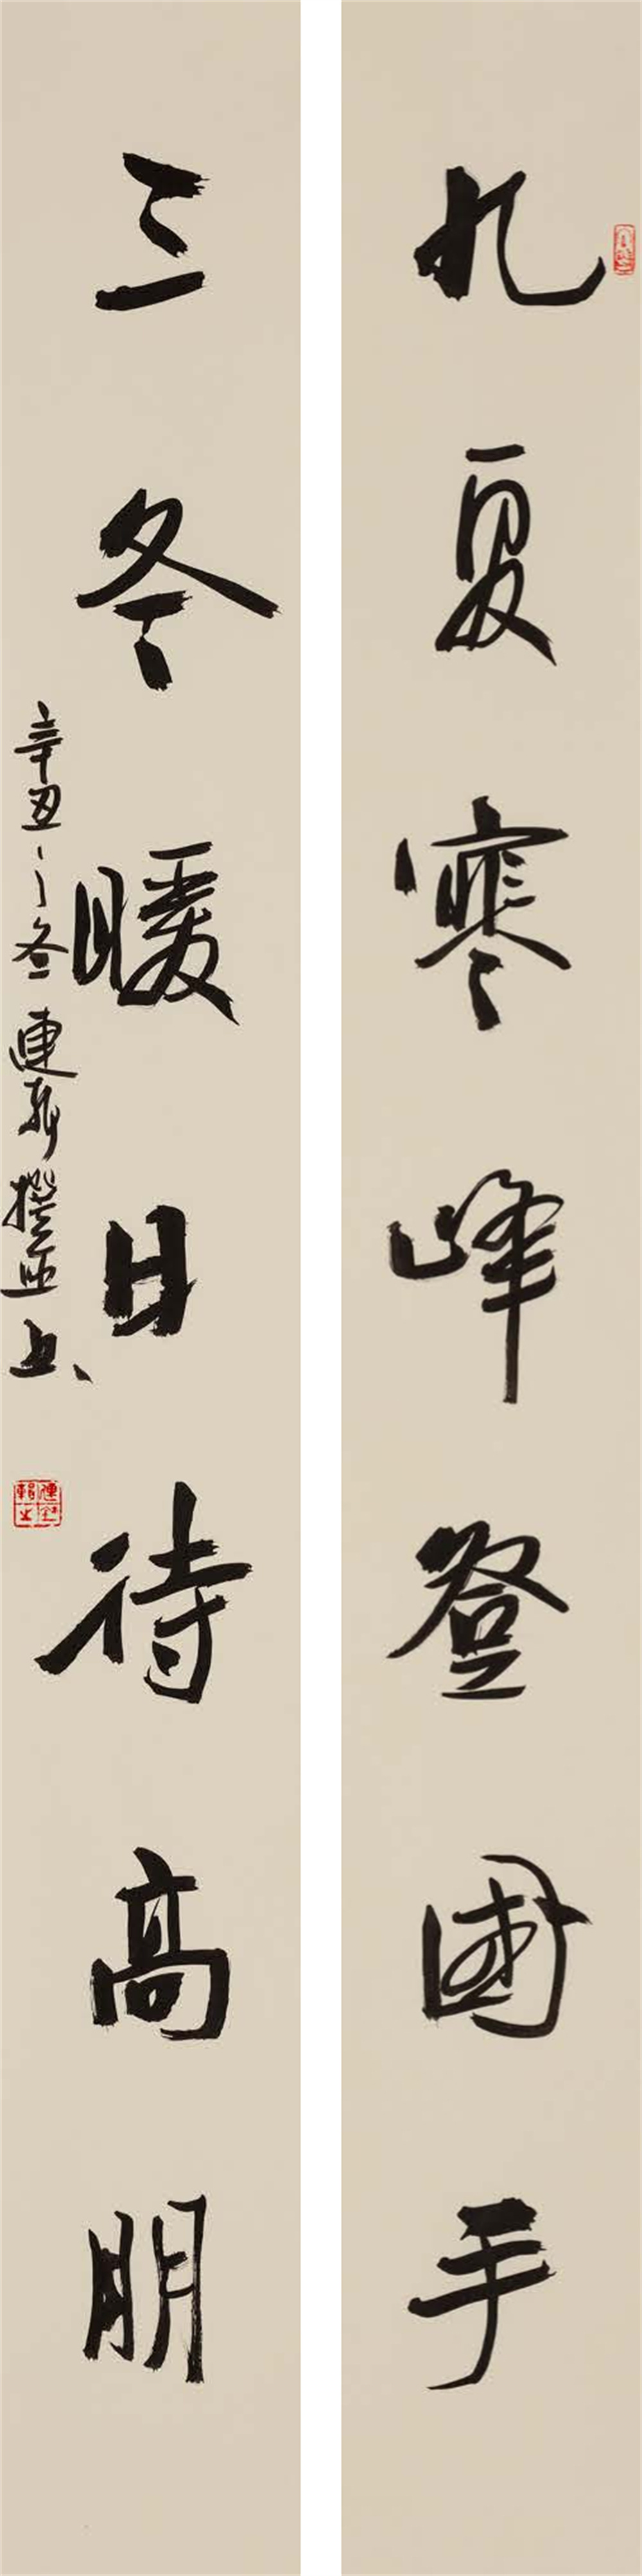 九夏寒峰登国手
三冬暖日待高朋
辛丑之冬連新撰並書